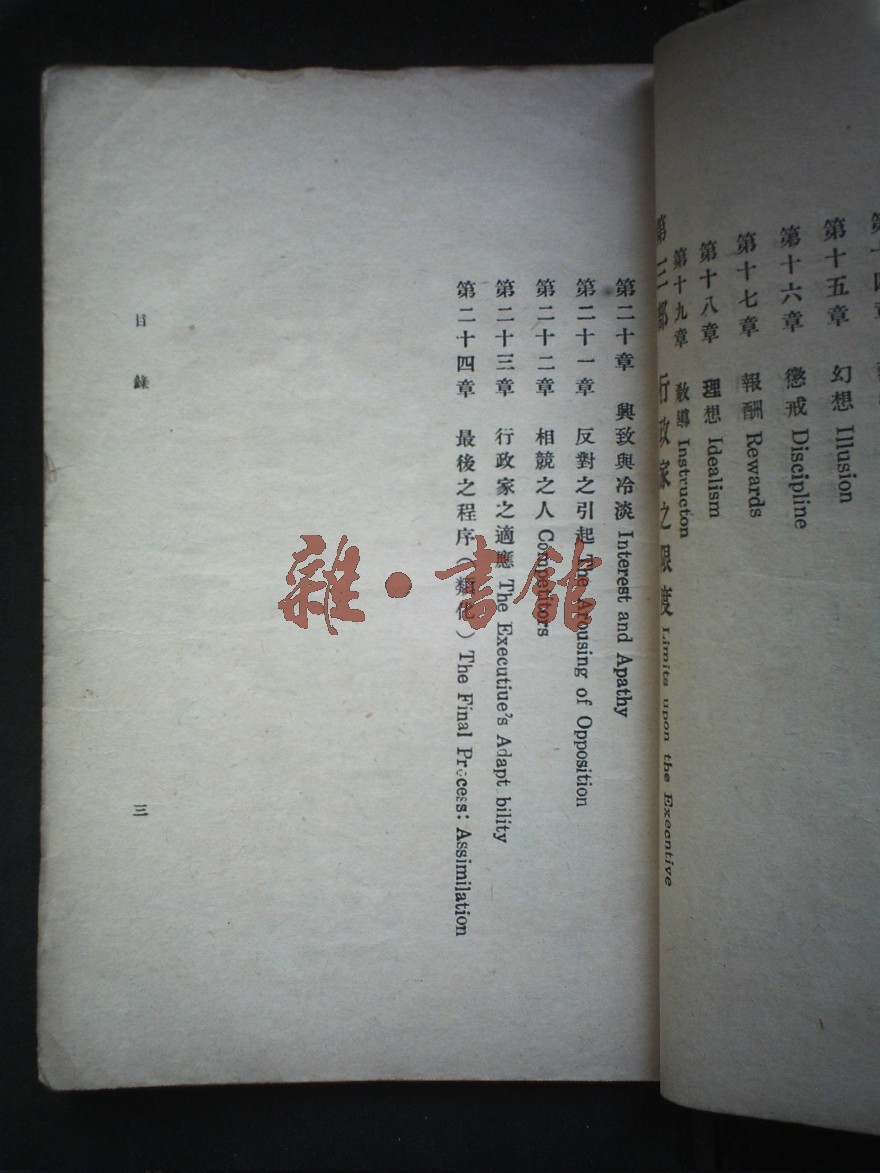 第十五章 幻想 Illusion
第十六章 懲戒 Discipline
第十七章 報酬 Rewards
第十八章 理想 Idealism
第十九章 教導 Instructon
第三部 行政家之限度 Limits upon the Executive
第二十章 興致與冷淡 Interest and Apathy
第二十一章 反對之引起 The Arousing of Opposition
第二十二章 相競之人 Competitors
第二十三章 行政家之適應 The Executiue's Adapt bility
第二十四章 最後之程序(類化) The Final Process: Assimilation
目錄
三
雜·書館